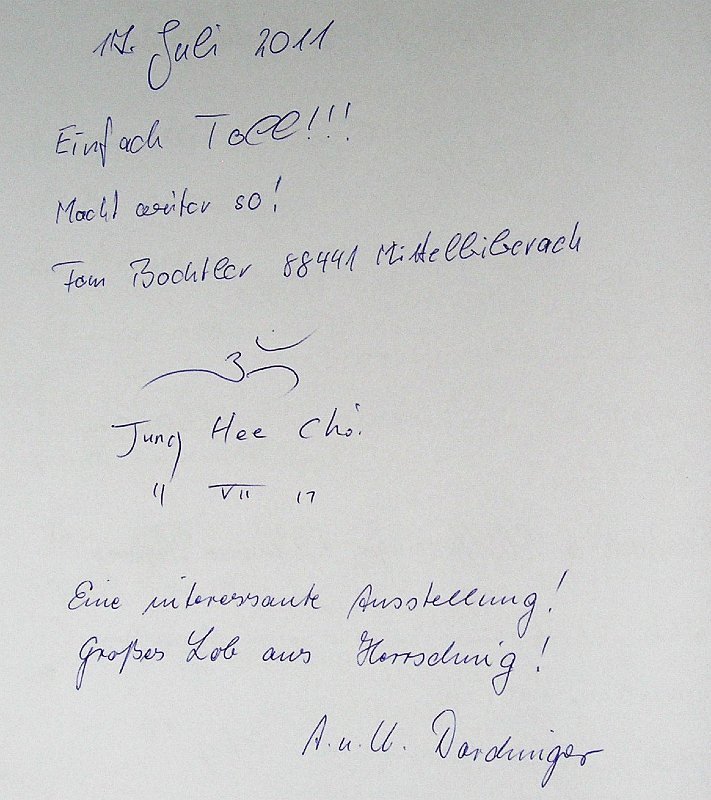 17. Juli 2011
Einfach Toll!!!
Macht weiter so!
Fam Bochtler 88441 Mittelbiberach
Jung Hee Choi.
11 VII 17
Eine interessante Ausstellung!
Großes Lob aus Herrsching!
A. u. U. Dardinger